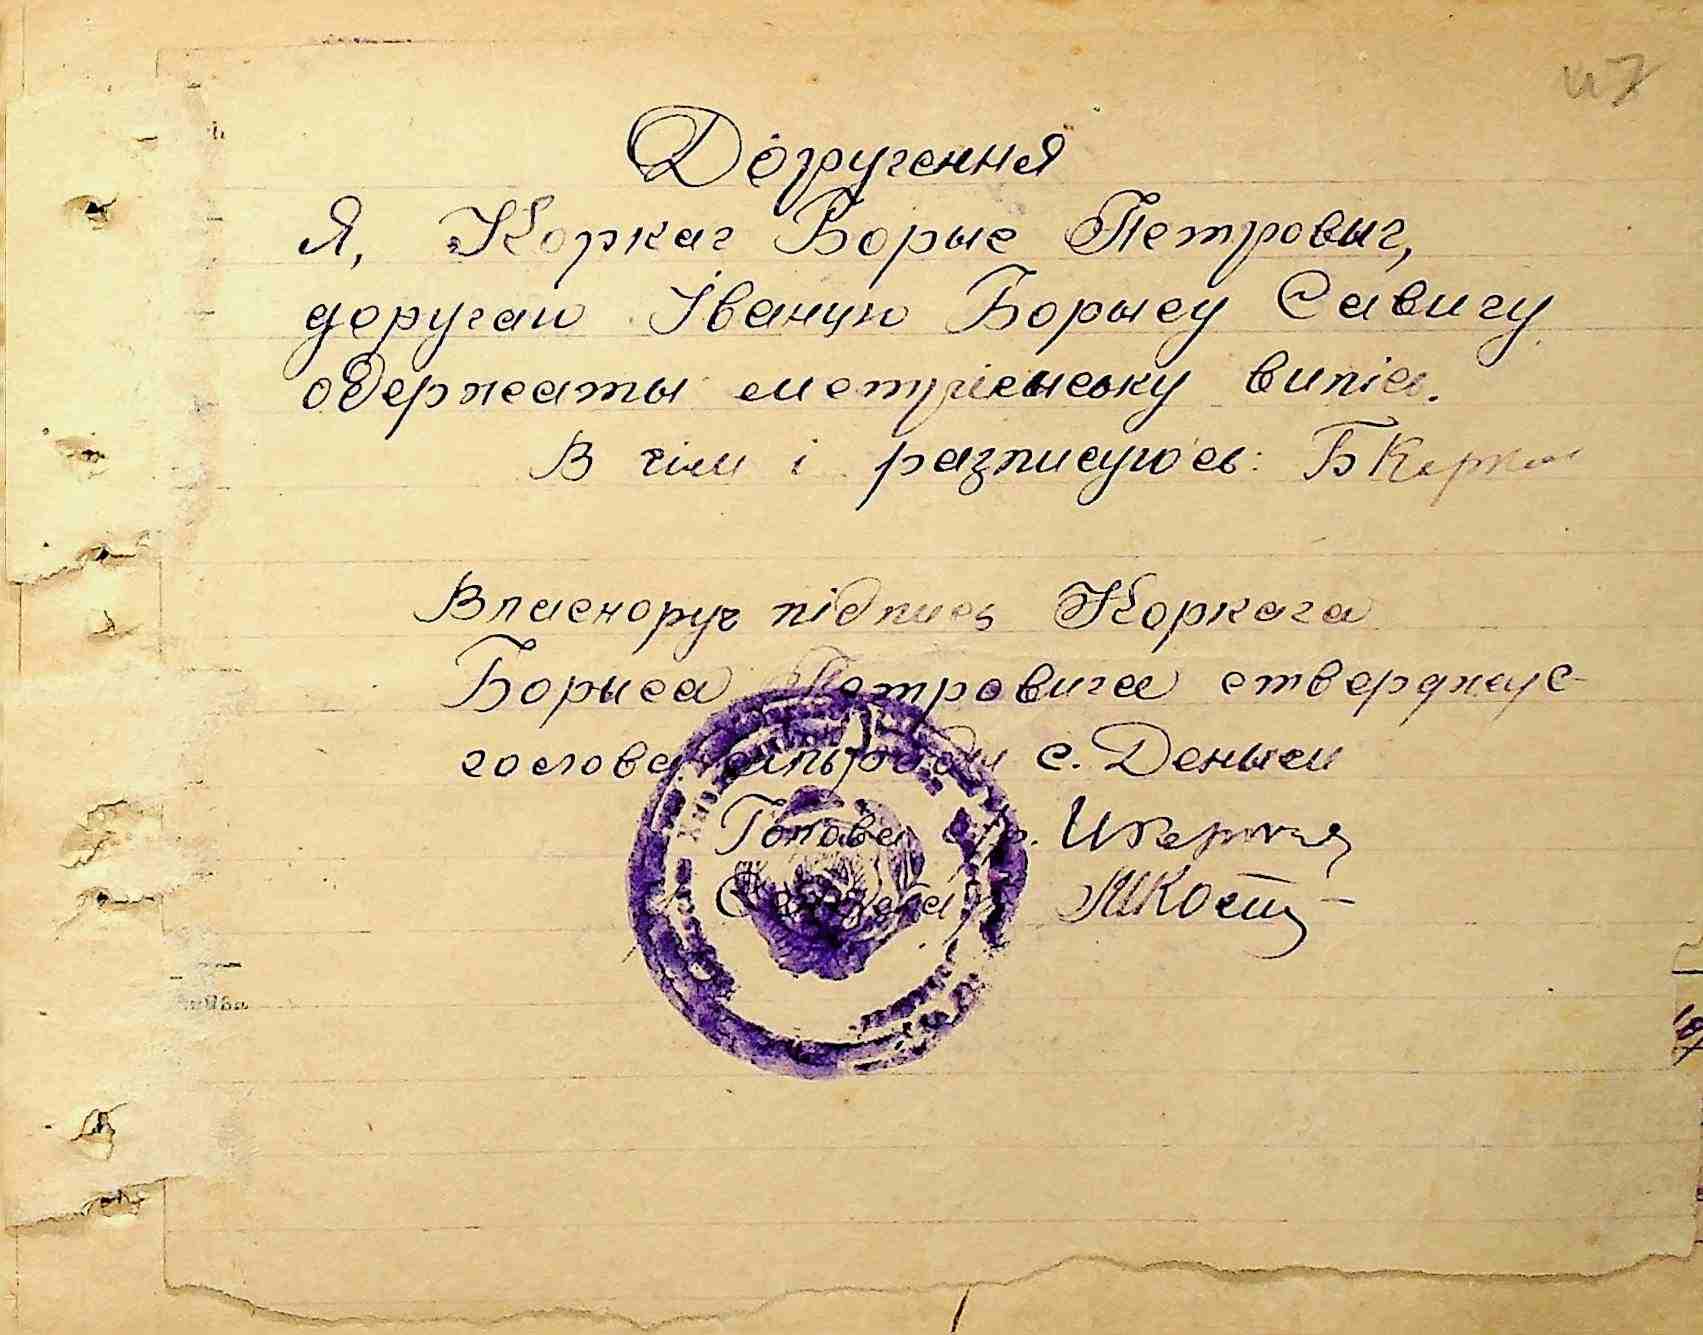 47
Доручення
Я, Коркач Борыс Петровыч,
доручаю Іванцю Борысу Савичу
одержаты метрическьку випіс.
В чім і разписуюсь: Б Корк
Власноруч підпись Коркача
Борыса Петровича стверджує
голова сильради с. Денысы
Голова с/р.
Секретарь МКост